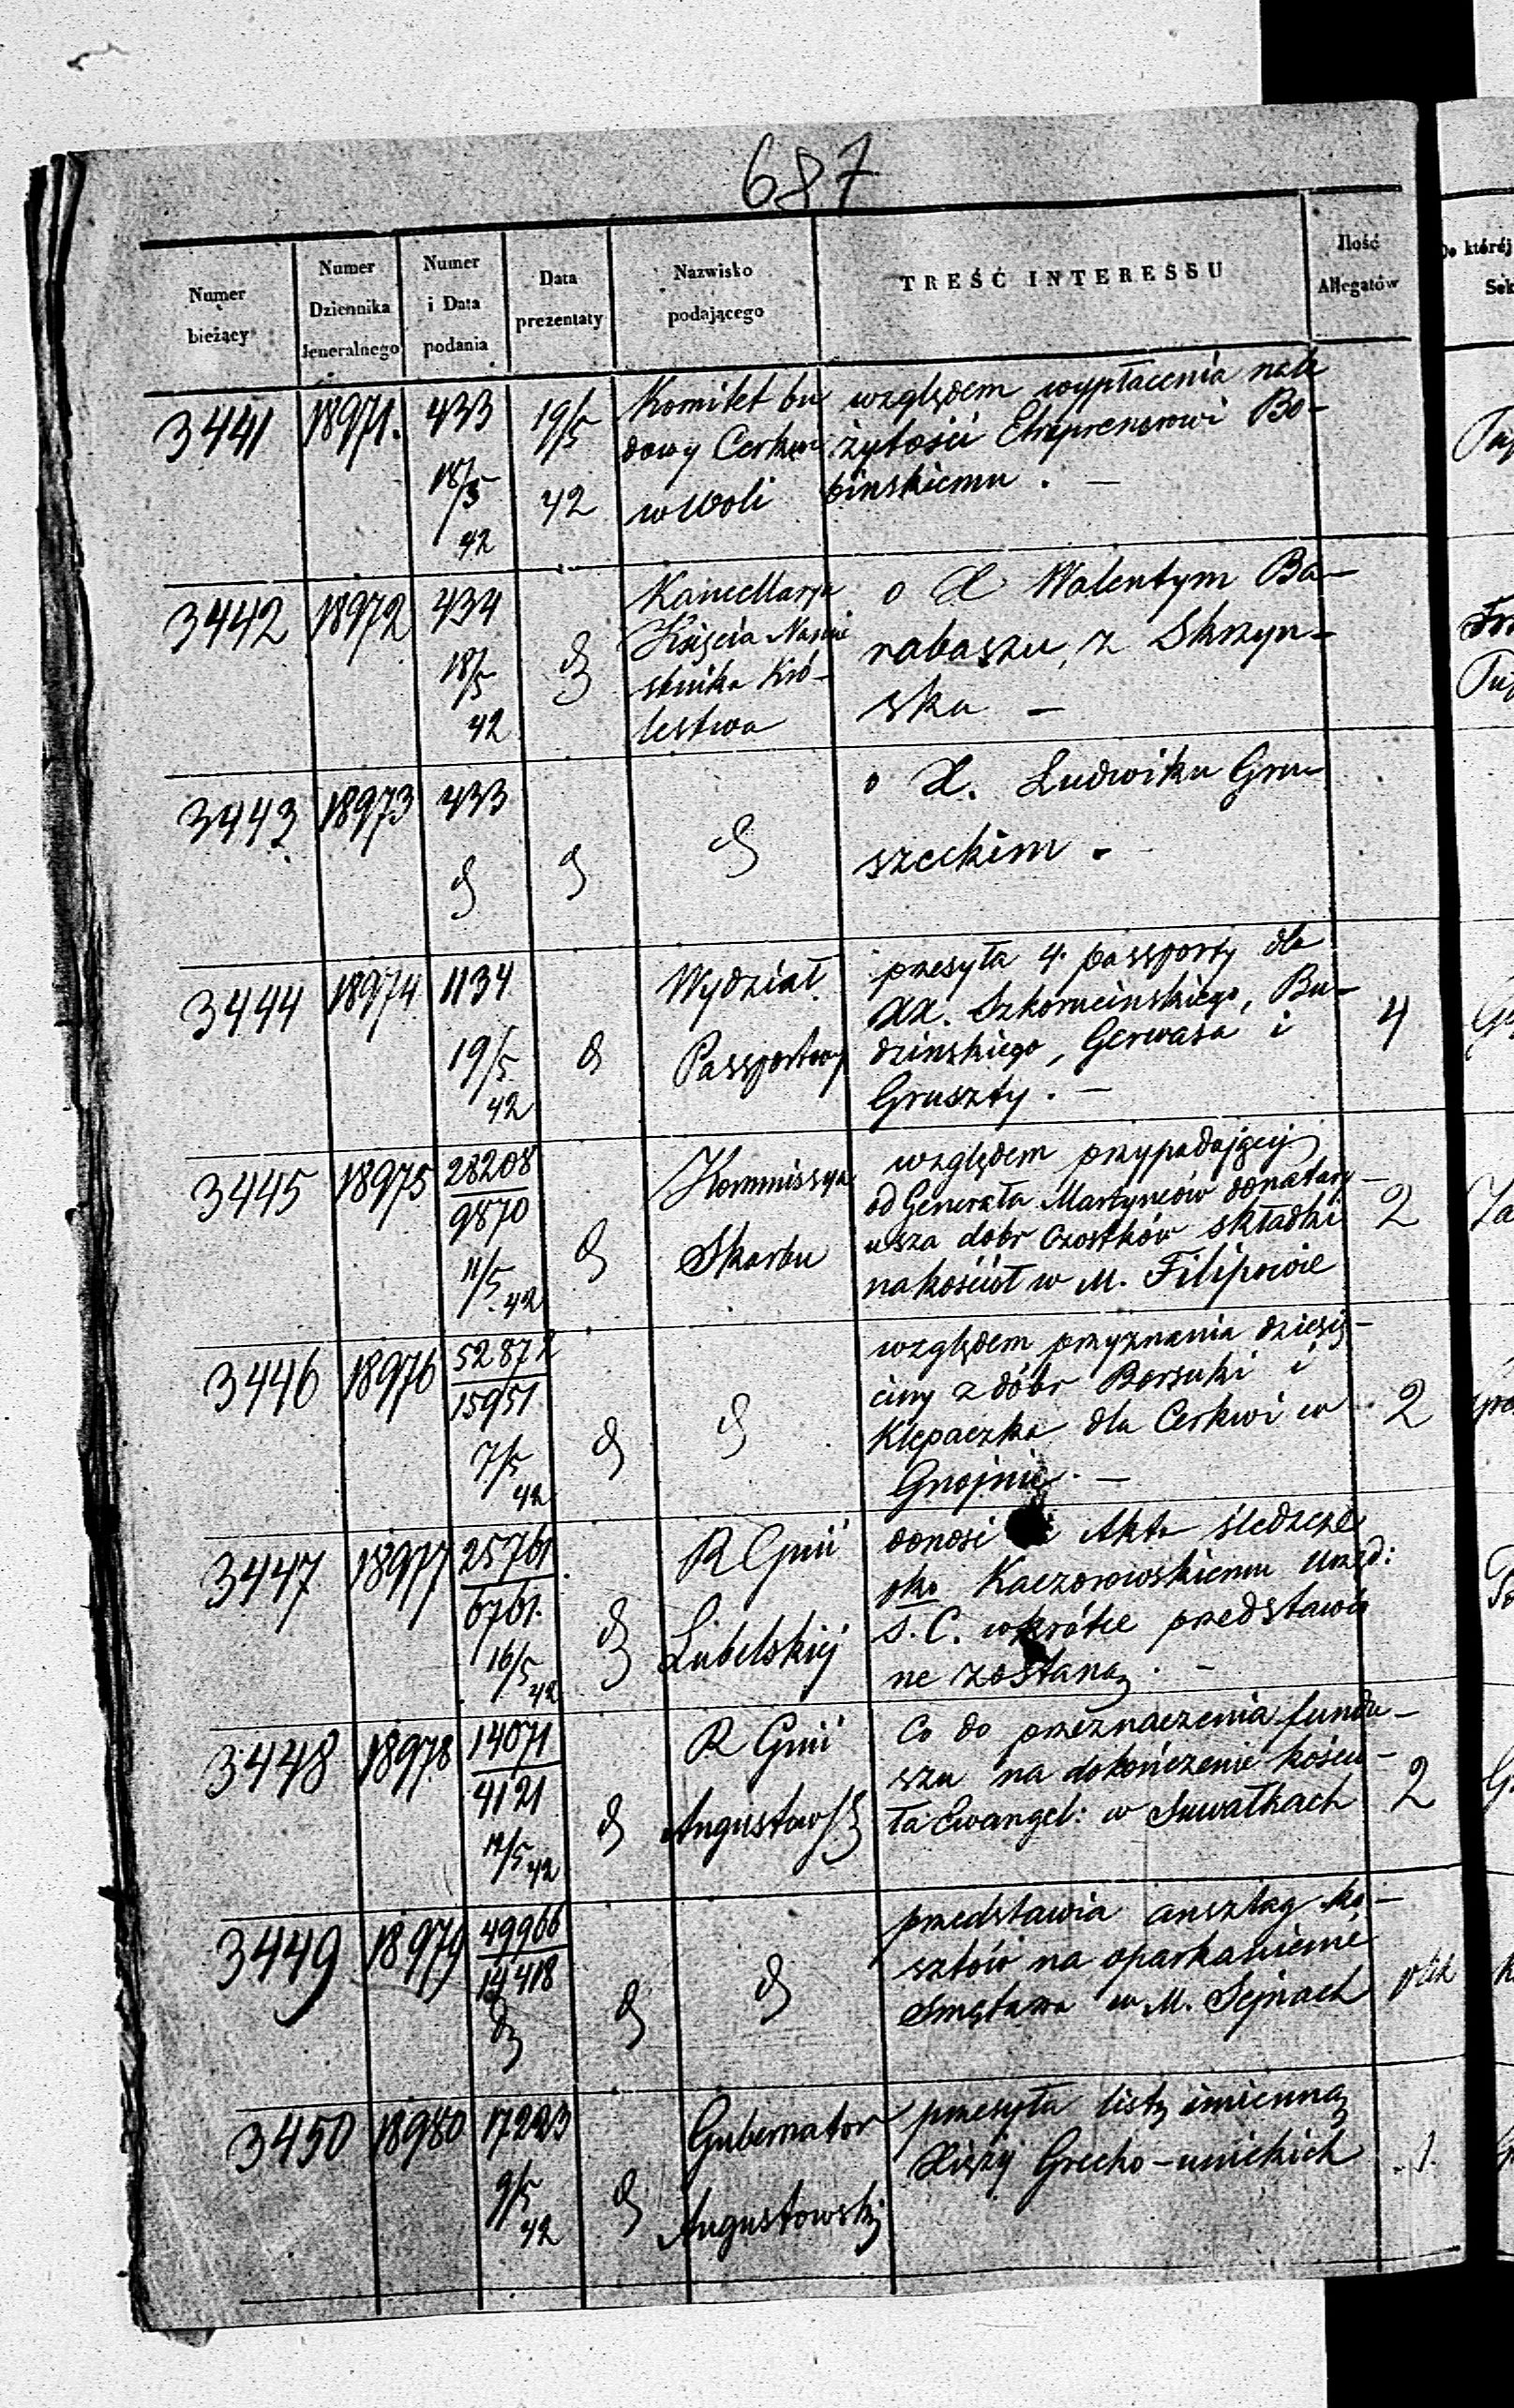 687
Numer
bieżący
Numer
Dziennika
Jeneralnego
Numer
i Data
podania
Data
prezentaty
Nazwisko
podającego
TREŚĆ INTERESSU
Ilość
Allegatów
Do której
Sek
3441
18971.
433
18/5
42
19/5
42
Komitet bu
dowy Cerkwi
w Woli
względem wypłacenia nale
żytości Entreprenerowi Bo-
binskiemu. —
3442
18972
434
18/5
42
Kancellarja
Księcia Namie
stnika Kró-
lestwa
o X Walentym Ba-
rabaszu, z Skrzyn-
ska —
3443
18973
433
o X. Ludwiku Gru
szeckim.
3444
18974
1134
19/5
42
Wydział
Passportowy
przesyła 4. passporty dla
XX. Szkorucinskiego, Bu-
dzinskiego, Gerwasa i
Gruszty. —
4
3445
18975
28208
9870
11/5 42
Kommissya
Skarbu
względem przypadającej
od Generała Martynców donatary-
usza dóbr Czostków składki
na kościoł w M. Filipowie
2
3446
18976
52872
15951
7/5
42
względem przyznania dziesię-
ciny z dóbr Borsuki i
Klepaczka dla Cerkwi w
Gnojnie. —
2
3447
18977
25761.
6761.
16/5 42
R Gnii
Lubelskiej
donosi Akta śledcze
pko Kaczorowskiemu Urzęd:
S. C. wkrótce przedstawio
ne zostaną. —
3448
18978
14071
4121
12/5 42
R Gnii
Augustows
Co do przeznaczenia fundu-
szu na dokończenie kościo-
ła Ewangel: w Suwałkach
2
3449
18979
49966
14418
przedstawia anszlag ko-
sztów na oparkanienie
Smętarza w M. Sejnach
plik
3450
18980
17223
9/5
42
Gubernator
Augustowski
przesyła listę imienną
Xięży Grecko-unickich
1.